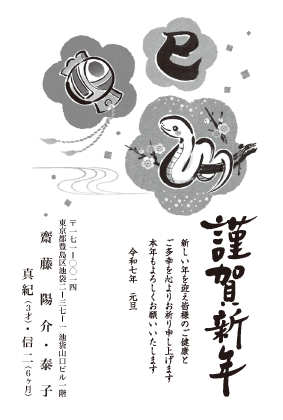 巳
謹賀新年
新しい年を迎え皆様のご健康と
ご多幸を心よりお祈り申し上げます
本年もよろしくお願いいたします
令和七年　元旦
〒一七一-〇〇一四
東京都豊島区池袋二-三七-一 池袋山口ビル一階
齋藤陽介・泰子
真紀(3才)・信二(6ヶ月)